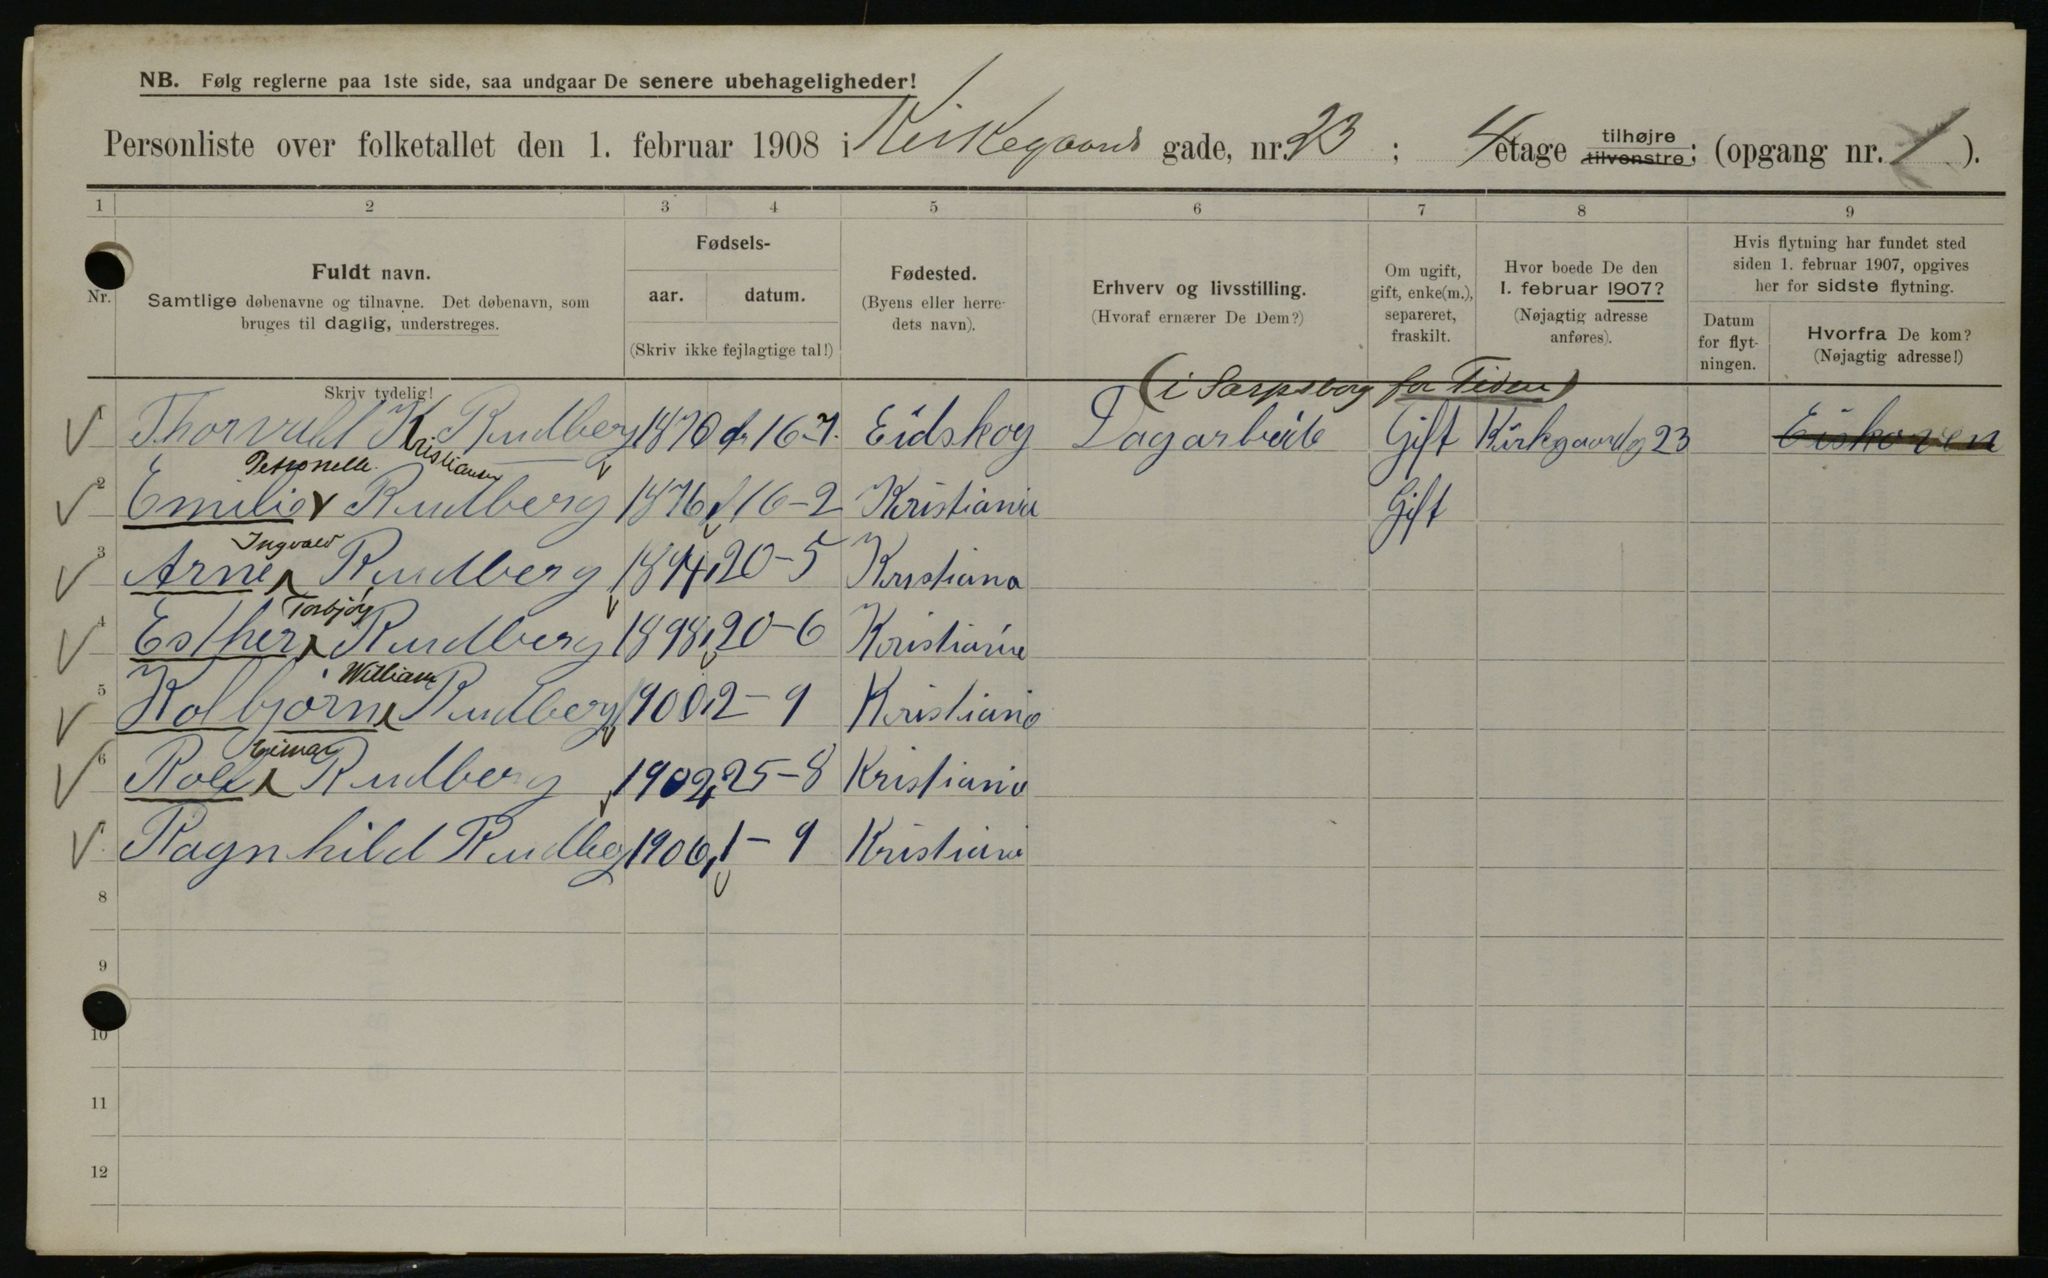 NB. Følg reglerne paa 1ste side, saa undgaar De senere ubehageligheder!
Personliste over folketallet den 1. februar 1908 i Kirkegaards gade, nr. 23 ; 4 etage tilhøjre tilvenstre ; (opgang nr. 1 ).
1 2 3 4 5 6 7 8 9
Nr.
Fuldt navn.
Samtlige døbenavne og tilnavne. Det døbenavn, som
bruges til daglig, understreges.
Skriv tydelig!
Fødsels-
aar. datum.
(Skriv ikke fejlagtige tal!)
Fødested.
(Byens eller herre-
dets navn).
Erhverv og livsstilling.
(Hvoraf ernærer De Dem?)
Om ugift,
gift, enke(m.),
separeret,
fraskilt.
Hvor boede De den
1. februar 1907?
(Nøjagtig adresse
anføres).
Hvis flytning har fundet sted
siden 1. februar 1907, opgives
her for sidste flytning.
Datum
for flyt-
ningen.
Hvorfra De kom?
(Nøjagtig adresse!)
(i Sarpsborg for Tiden)
1 Thorvald Kristiansen Rudberg 1870 16-7. Eidskog Dagarbeide Gift Kirkgaardg 23
Petronelle
2 Emilie Rudberg 1876 16-2 Kristiania Gift
Ingvald
3 Arne Rudberg 1894 20-5 Kristiana
4 Esther Torbjør Rudberg 1898 20-6 Kristiania
William
5 Kolbjørn Rudberg 1900 2-9 Kristiania
Einar
6 Rolf Rudberg 1902 25-8 Kristiania
Ragnhild Rudberg 1906 1-9 Kristiania
8
9
10
11
12